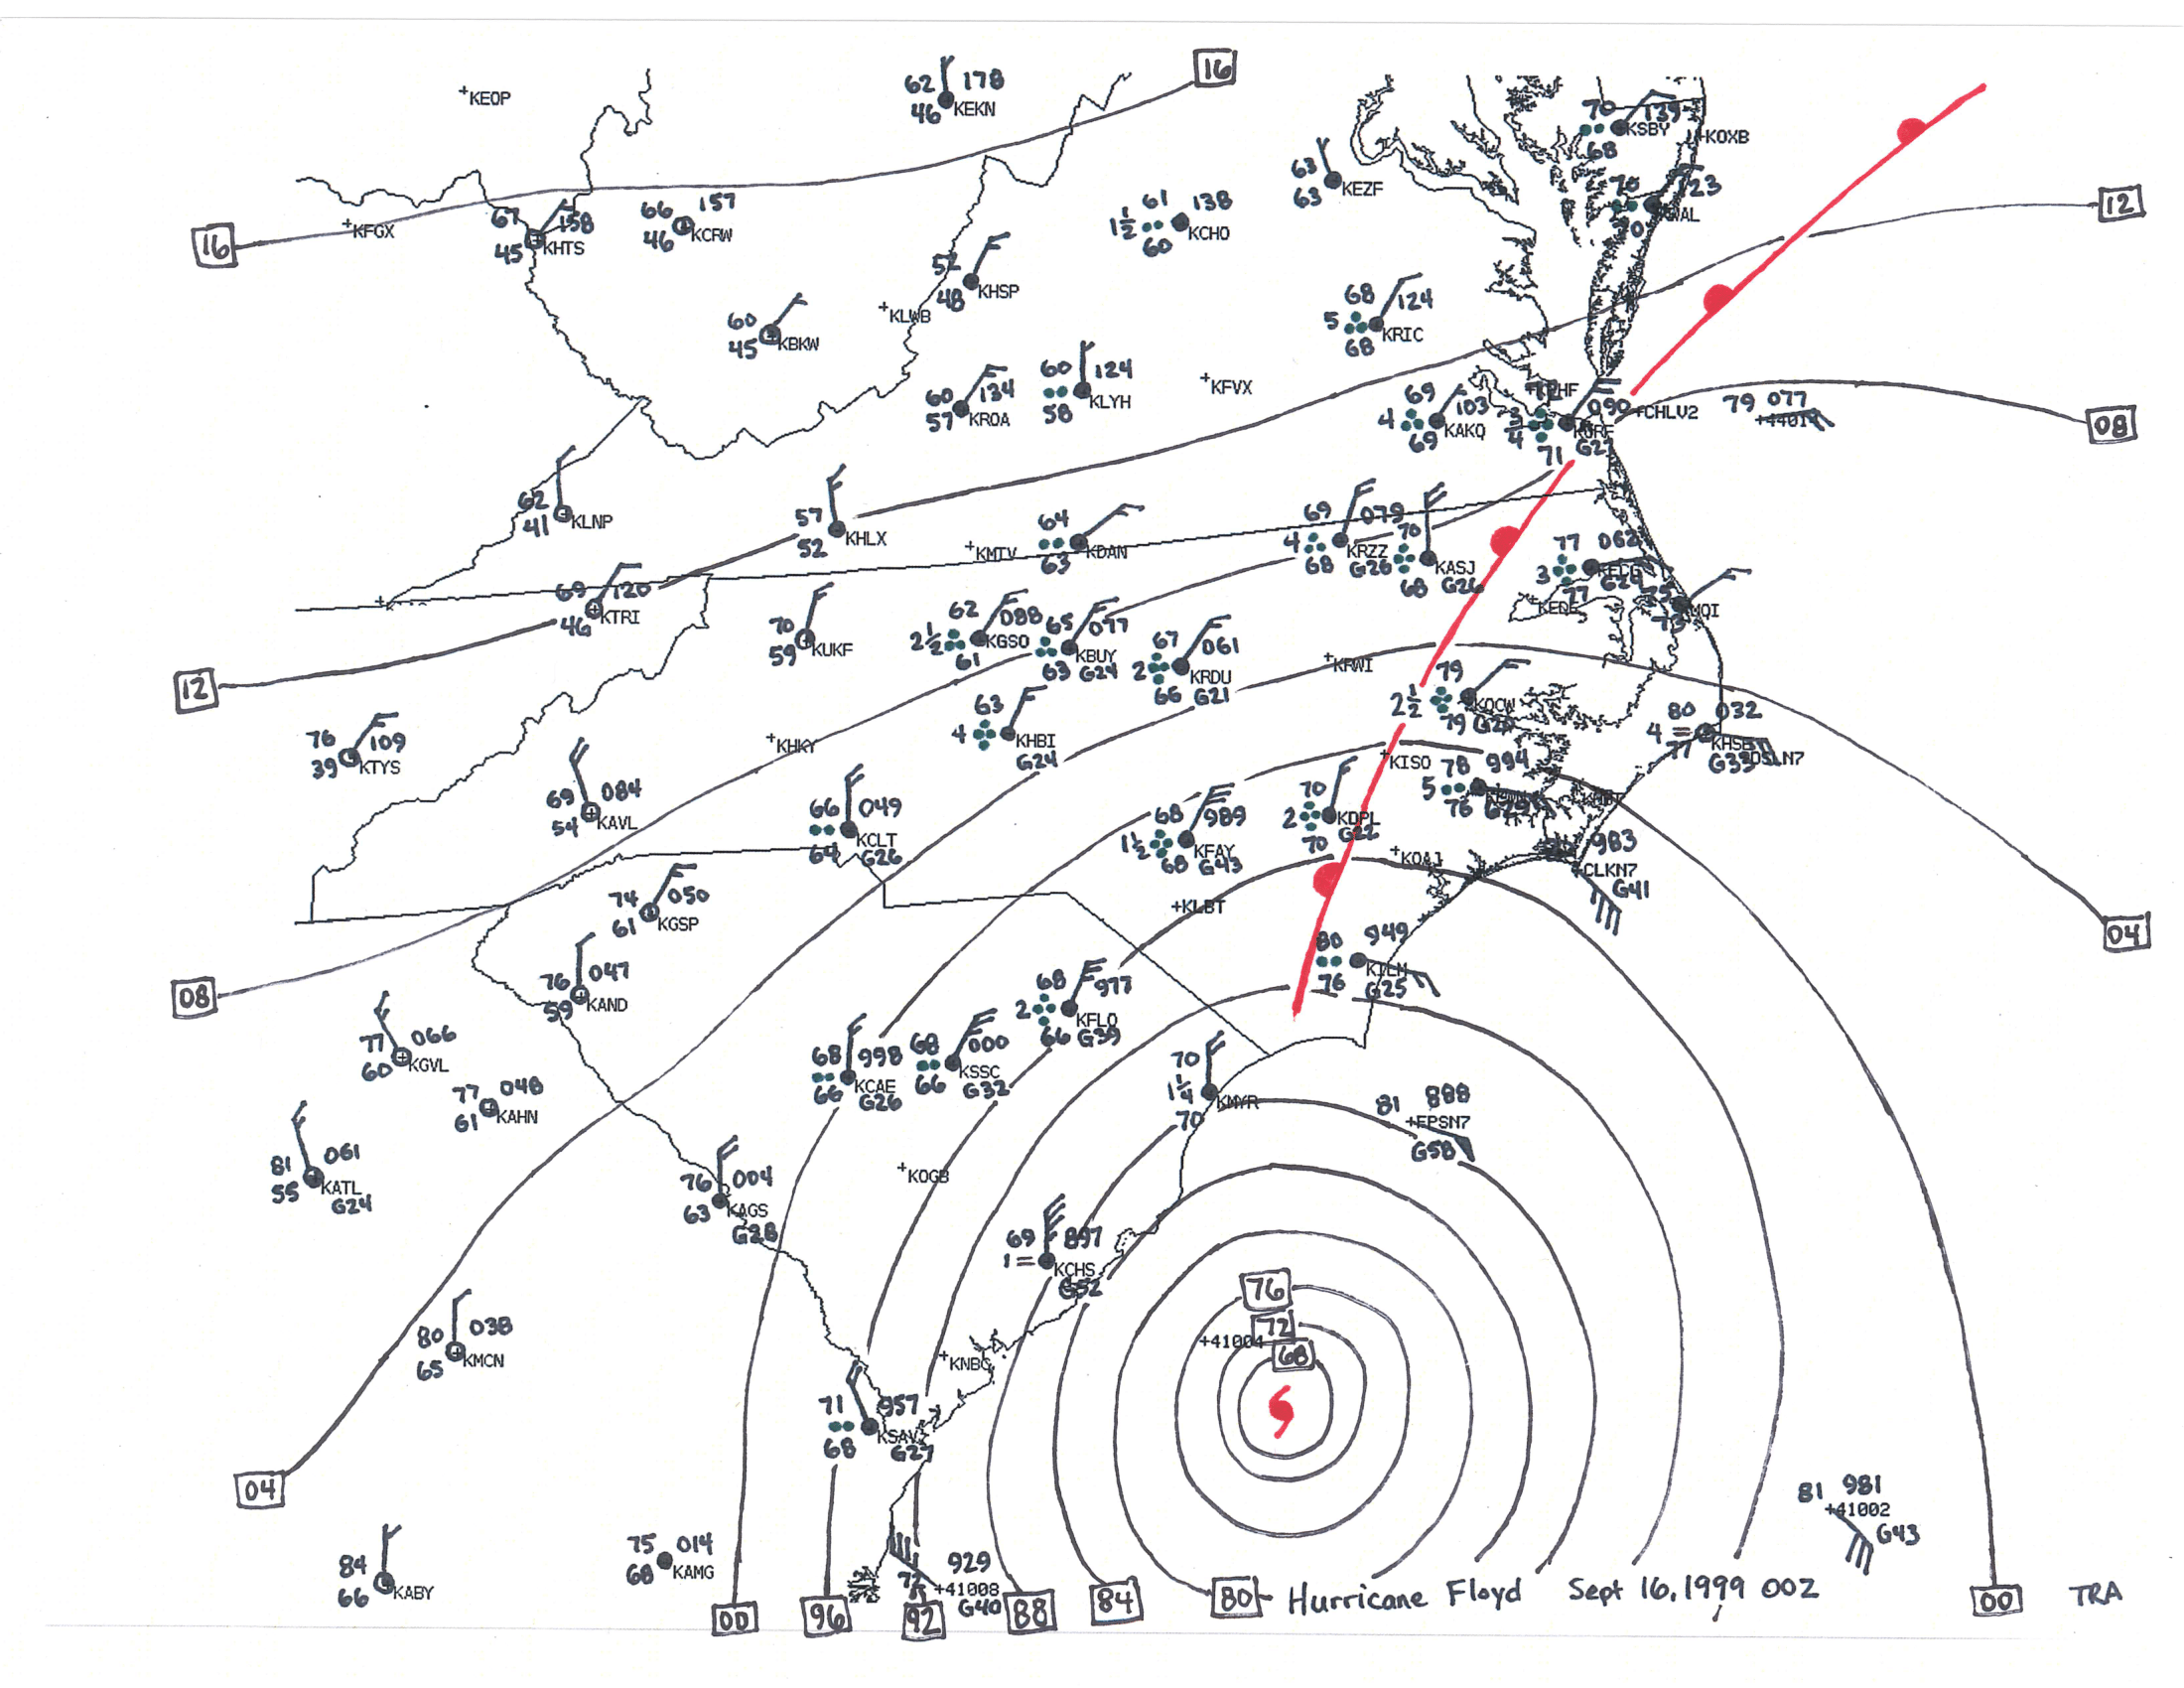 16
62 178
46 KEKN
+KEOP
70 139
KSBY
68
+KOXB
63
63 KEZF
70 123
12
61 138
1 1/2 KCHO
60
+KFGX
67 158
45 KHTS
66 157
46 KCRW
16
52
48 KHSP
+KLWB
60
45 KBKW
68 124
5 KRIC
68
60 134
57 KROA
60 124
KLYH
58
+KFVX
69 103
4 KAKQ
69
090
3/4
71
+CHLV2
79 077
08
62
41 KLNP
57
52 KHLX
+KMTV
64
KDAN
63
69 079
4 KRZZ
68 G26
70
KASJ
68 G26
77 062
3
77
73
69 120
46 KTRI
70
59 KUKF
62 088
2 1/2 KGSO
61
65 077
KBUY
63 G24
67 061
2 KRDU
66 G21
+KRWI
12
79
2 1/2
79
63
4 KHBI
G24
80 032
4
77 G33
+KHKY
76 109
39 KTYS
69 084
54 KAVL
66 049
KCLT
64 G26
68 989
1 1/2 KFAY
68 G43
70
2 KDPL
70 G22
+KISO
78 994
5
76
983
CLKN7
G41
+KOAJ
74 050
61 KGSP
+KLBT
04
80 949
KILM
76 G25
76 047
59 KAND
08
68 977
2 KFLO
66 G39
77 066
60 KGVL
77 048
61 KAHN
68 998
KCAE
66 G26
68 000
KSSC
66 G32
70
1 1/4 KMYR
70
81 888
+FPSN7
G58
81 061
55 KATL
G24
76 004
63 KAGS
G28
+KOGB
69 897
1 KCHS
G52
76
72
68
+41004
80 038
65 KMCN
+KNBC
71 957
KSAV
68 G27
04
84
66 KABY
75 014
68 KAMG
929
+41008
G40
81 981
+41002
G43
00
96
92
88
84
80
Hurricane Floyd Sept 16, 1999 00Z
00
TRA